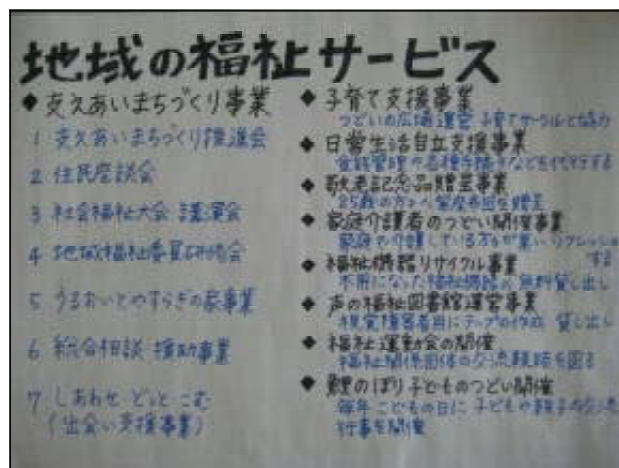 地域の福祉サービス
◆ 支えあいまちづくり事業
1 支えあいまちづくり推進会
2 住民座談会
3 社会福祉大会 講演会
4 地域福祉委員研修会
5 うるおいとやすらぎの家事業
6 総合相談 援助事業
7 しあわせ どっと こむ
(出会い支援事業)
◆ 子育て支援事業
つどいの広場運営 子育てサークルと協力
◆ 日常生活自立支援事業
金銭管理や各種手続きなどを代行する
◆ 敬老記念品贈呈事業
85歳の方々へ
◆ 家庭介護者のつどい開催事業
家庭で介護している方々が集い リフレッシュ
する
◆ 福祉機器リサイクル事業
不用になった福祉機器を無料貸し出し
◆ 声の福祉図書館運営事業
視覚障害者用にテープの作成 貸し出し
◆ 福祉運動会の開催
福祉関係団体の交流親睦を図る
◆ 鯉のぼり子どものつどい開催
毎年 こどもの日に 子どもや親子の交流
行事を開催